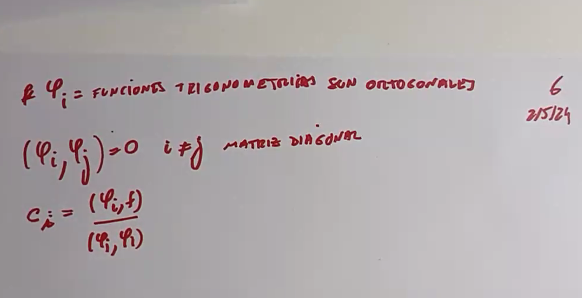 φi = FUNCIONES TRIGONOMETRICAS SON ORTOGONALES
6
2/5/24
(φi, φj) = 0 i ≠ j MATRIZ DIAGONAL
ci = (φi, f)
(φi, φi)